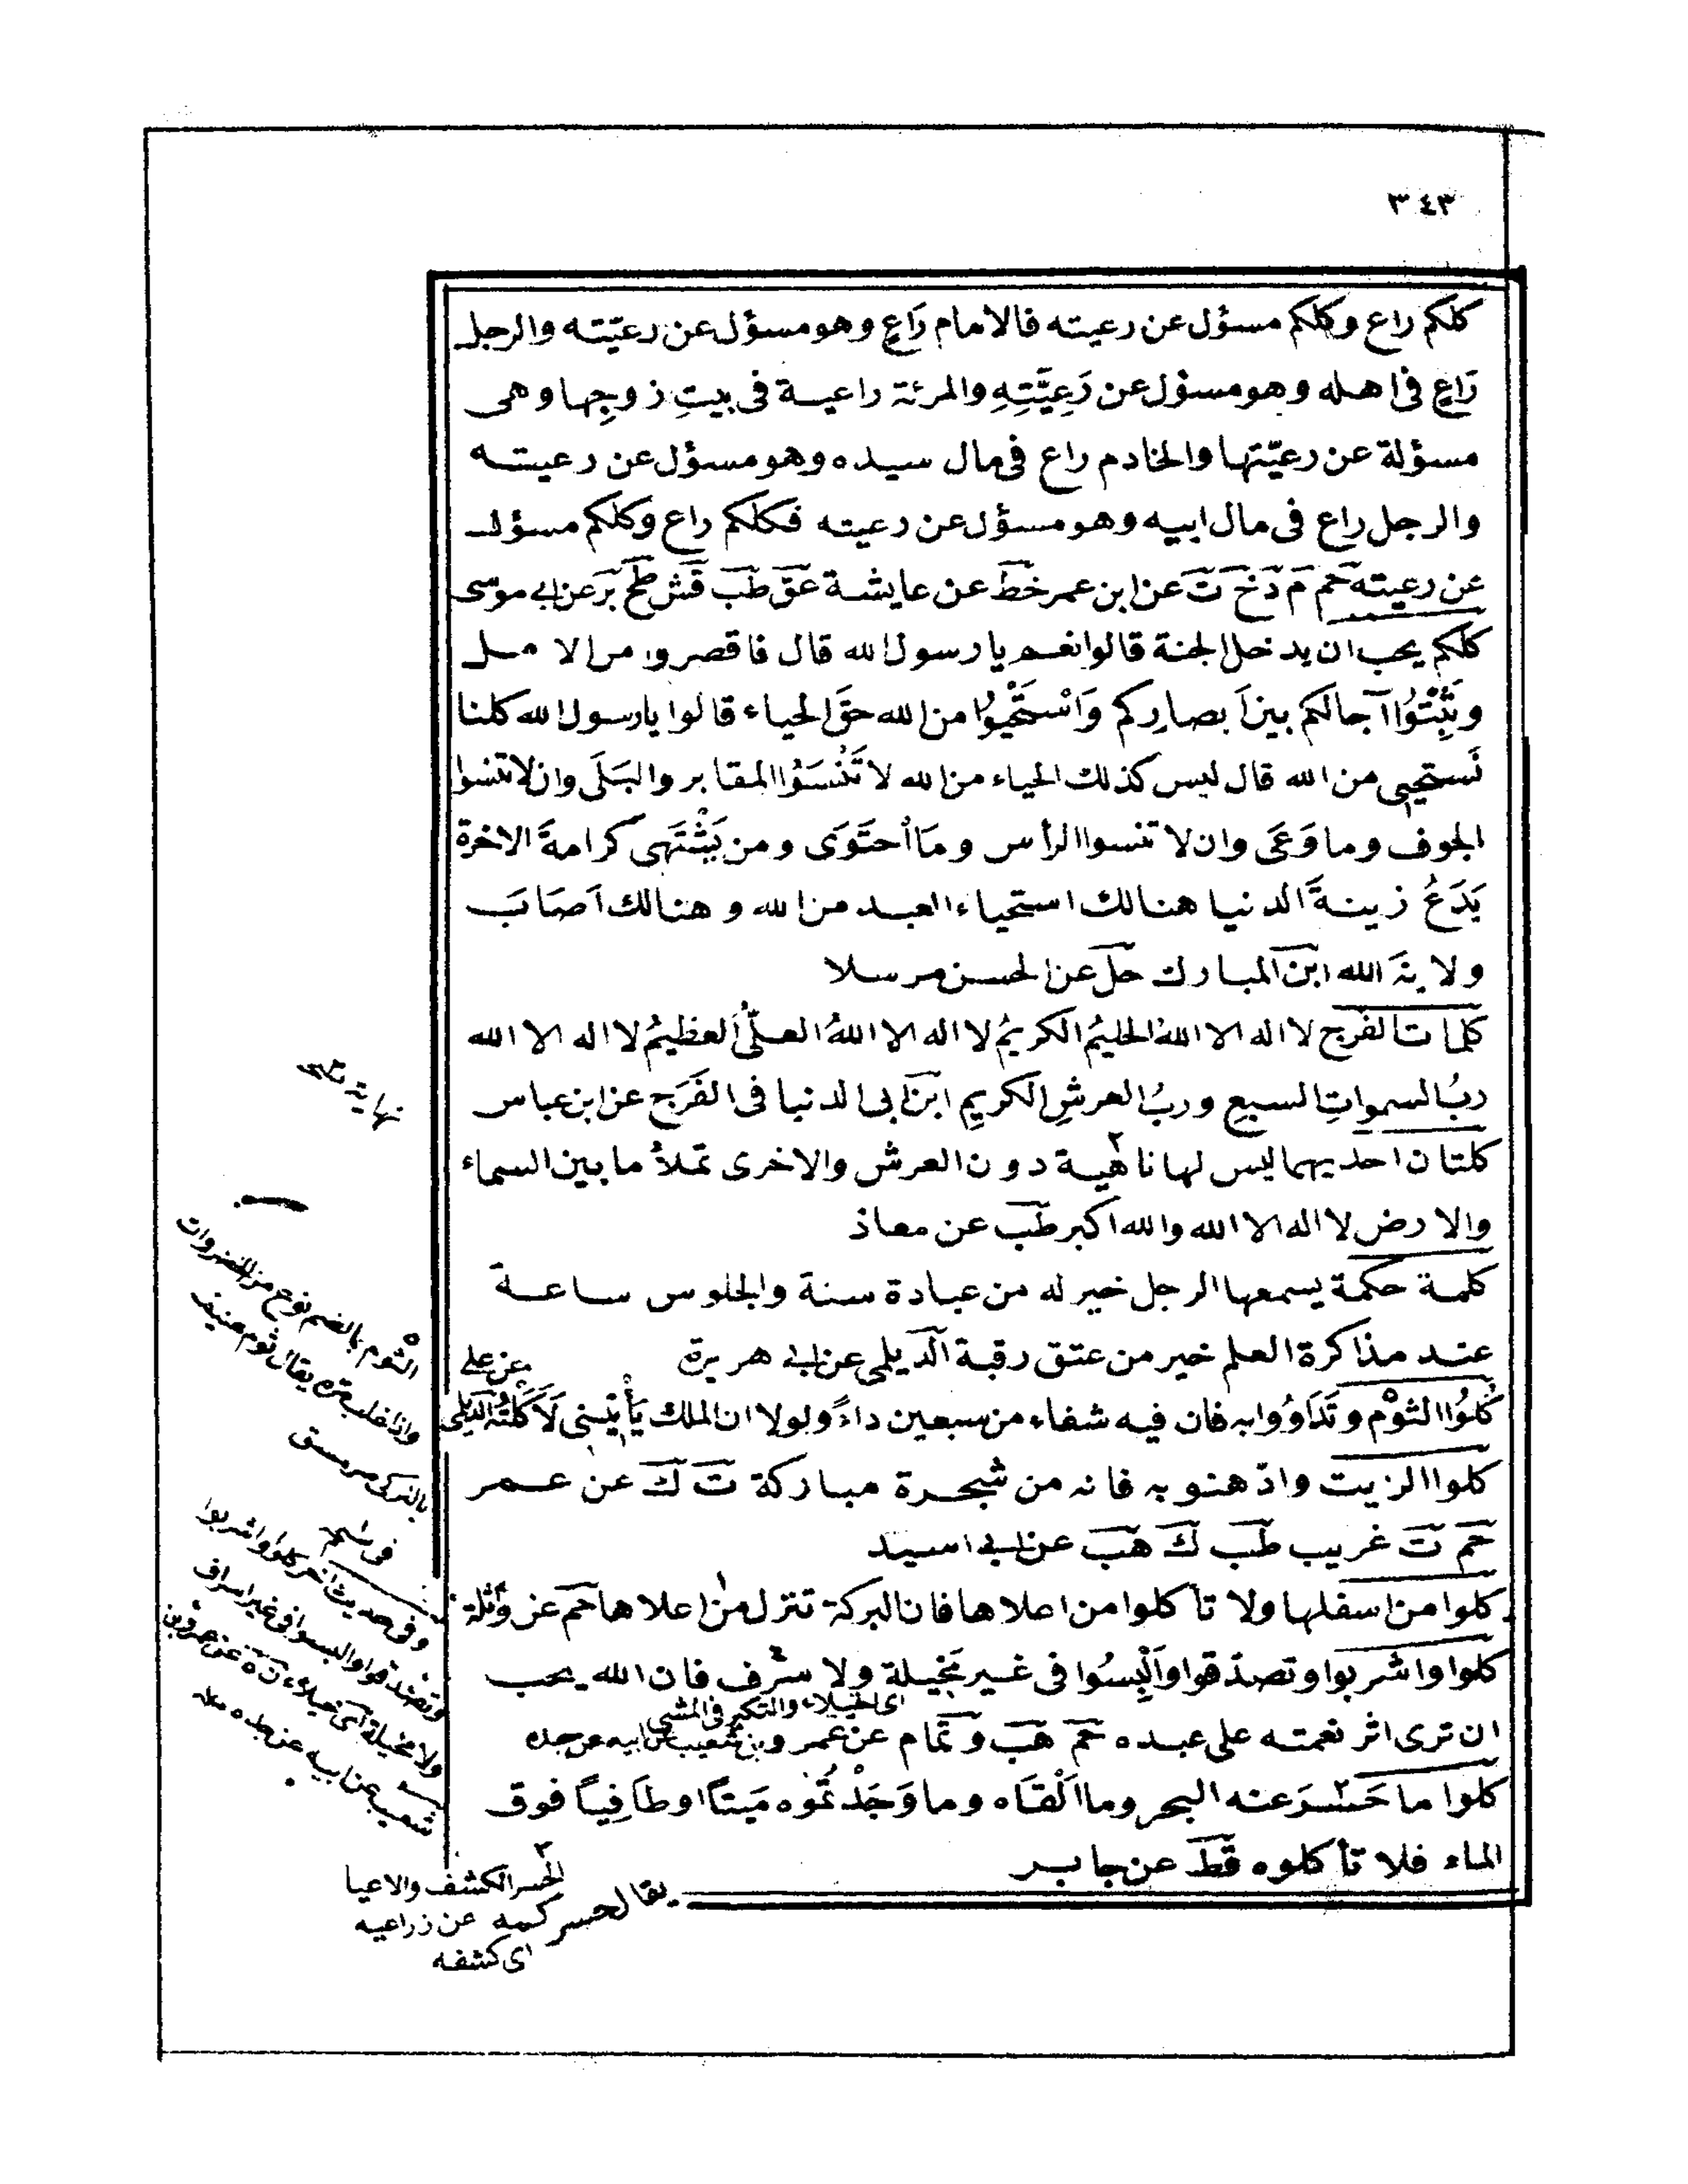 ٣٤٣
كلكم راع وكلكم مسؤل عن رعيته فالامام رَاعٍ وهو مسؤل عن رعيّته والرجل
رَاعٍ فى اهله وهو مسؤل عن رَعِيَّتِهِ والمرئة راعية فى بيتِ زوجِها وهى
مسؤلة عن رعيّتها والخادم راع فى مال سيده وهو مسؤل عن رعيته
والرجل راع فى مال ابيه وهو مسؤل عن رعيته فكلكم راع وكلكم مسؤل
عن رعيته حم م د خ ت عن ابن عمر خط عن عايشة عق طب قش طح بر عن ابى موسى
كلكم يحب ان يدخل الجنة قالوا نعم يا رسول الله قال فاقصروا من الامل
وثَبِّتُوا آجالكم بين اَبصارِكم وَاسْتَحْيُوا من الله حقَ الحياء قالوا يا رسول الله كلنا
نَستحيى من الله قال ليس كذلك الحياء من الله لا تَنْسَوُا المقابر والبَلَى وان لا تنسوا
الجوف وما وَعَى وان لا تنسوا الرأس ومَا اْحتَوَى ومن يَشْتَهِى كرامةَ الاخرة
يَدَعُ زينةَ الدنيا هنالك استحياء العبد من الله وهنالك اَصَابَ
ولايةَ الله ابن المبارك حل عن الحسن مرسلا
كلمات الفَرَج لا اله الا اللهُ الحليمُ الكريمُ لا اله الا اللهُ العلىُّ العظيمُ لا اله الا الله
ربُ السموات السبعِ وربُ العرشِ الكريمِ ابن ابى الدنيا فى الفَرَج عن ابن عباس
كلتان احديهما ليس لها ناهية دون العرش والاخرى تملأُ ما بين السماء
والارض لا اله الا الله والله اكبر طب عن معاذ
كلمة حكمة يسمعها الرجل خير له من عبادة سنة والجلوس ساعة
عند مذاكرة العلم خير من عتق رقبة الديلمى عن ابى هريرة
كُلُوُا الثوْم وتَدَاوُوا به فان فيه شفاء من سبعين داءً ولولا ان الملك يَأْتينى لَاَكَلتُه الديلمى عن على
كلوا الزيت وادّهنو به فانه من شجرة مباركة ت ك عن عمر
حم ت غريب طب ك هب عن ابى اسيد
كلوا من اسفلها ولا تأكلوا من اعلاها فان البركة تنزل من اعلاها حم عن وٰثلة
كلوا واشربوا وتصدّقوا واَلْبِسُوا فى غير مَخيلة ولا سرف فان الله يحب
اى الخيلاء والتكبر فى المشى
ان ترى اثر نعمته على عبده حم هب وتمام عن عمرو بن شعيب عن ابيه عن جده
كلوا ما حَسَرَ عنه البحر وما اَلْقَاه وما وَجَدْتُمُوه مَيتاً او طَافِياً فوق
الماء فلا تأكلوه قط عن جابر
نهاية
الثوم بالضم نوع من الخضروات
يقال ثوم
وفى حديث اخر كلوا واشربوا
وتصدقوا والبسوا فى غير اسراف
ولا مخيلة اى خيلاء ن ه عن عمرو بن
شعيب عن ابيه عن جده
الحسر الكشف والاعيا
يقال حسر كمه عن ذراعيه
اى كشفه